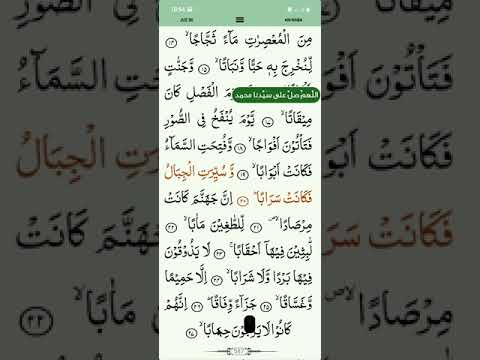 مِنَ الْمُعْصِرٰتِ مَآءً ثَجَّاجًا ۙ ﴿١٤﴾
لِّنُخْرِجَ بِهٖ حَبًّا وَّنَبَاتًا ۙ ﴿١٥﴾ وَّجَنّٰتٍ
الْفَصْلِ كَانَ
اللهم صل على سيدنا محمد
مِيْقَاتًا ۙ ﴿١٧﴾ يَّوْمَ يُنْفَخُ فِى الصُّوْرِ
فَتَاْتُوْنَ اَفْوَاجًا ۙ ﴿١٨﴾ وَّفُتِحَتِ السَّمَآءُ
فَكَانَتْ اَبْوَابًا ۙ ﴿١٩﴾ وَّ سُيِّرَتِ الْجِبَالُ
فَكَانَتْ سَرَابًا ؕ ﴿٢٠﴾ اِنَّ جَهَنَّمَ كَانَتْ
مِرْصَادًا ۙ ﴿٢١﴾ لِّلطَّاغِيْنَ مَاٰبًا ۙ ﴿٢٢﴾
لّٰبِثِيْنَ فِيْهَاۤ اَحْقَابًا ۚ ﴿٢٣﴾ لَا يَذُوْقُوْنَ
فِيْهَا بَرْدًا وَّلَا شَرَابًا ۙ ﴿٢٤﴾ اِلَّا حَمِيْمًا
وَّغَسَّاقًا ۙ ﴿٢٥﴾ جَزَآءً وِّفَاقًا ؕ ﴿٢٦﴾ اِنَّهُمْ
كَانُوْا لَا يَرْجُوْنَ حِسَابًا ۙ ﴿٢٧﴾